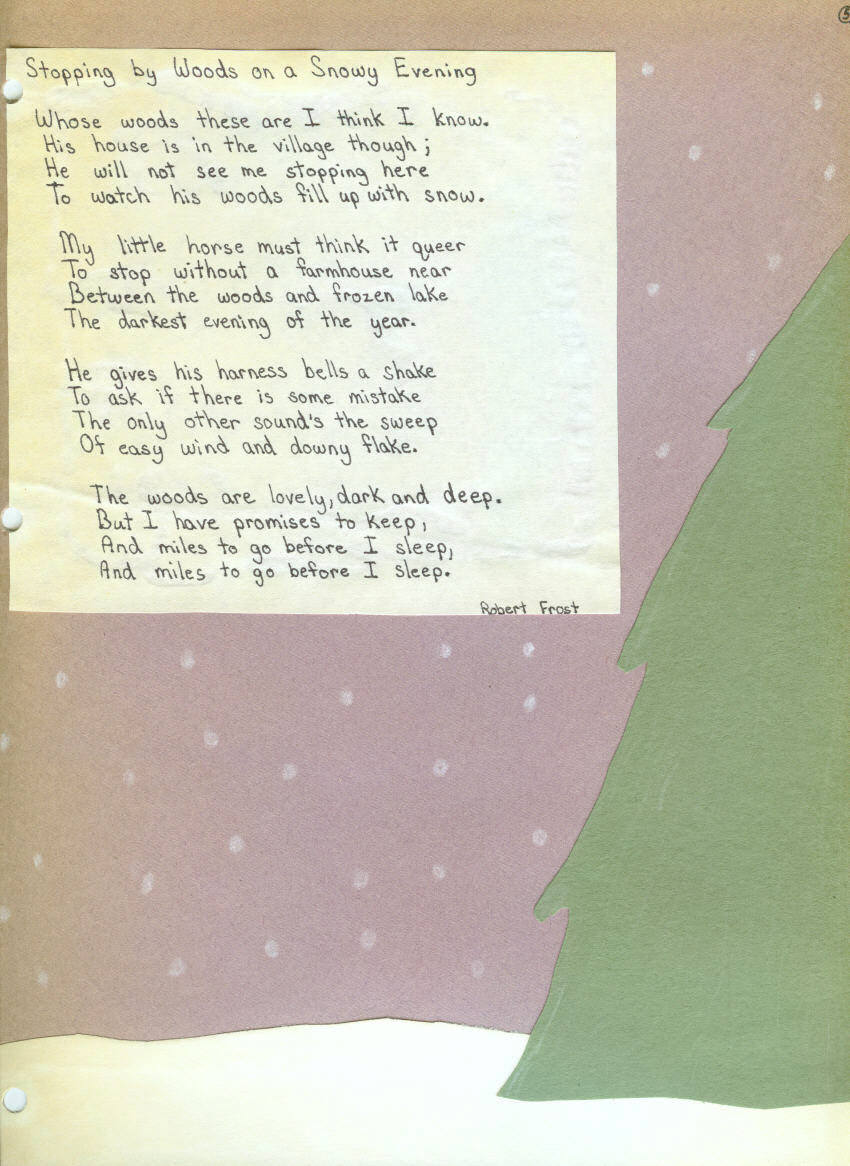 5
Stopping by Woods on a Snowy Evening
Whose woods these are I think I know.
His house is in the village though;
He will not see me stopping here
To watch his woods fill up with snow.
My little horse must think it queer
To stop without a farmhouse near
Between the woods and frozen lake
The darkest evening of the year.
He gives his harness bells a shake
To ask if there is some mistake
The only other sound's the sweep
Of easy wind and downy flake.
The woods are lovely, dark and deep.
But I have promises to keep,
And miles to go before I sleep,
And miles to go before I sleep.
Robert Frost